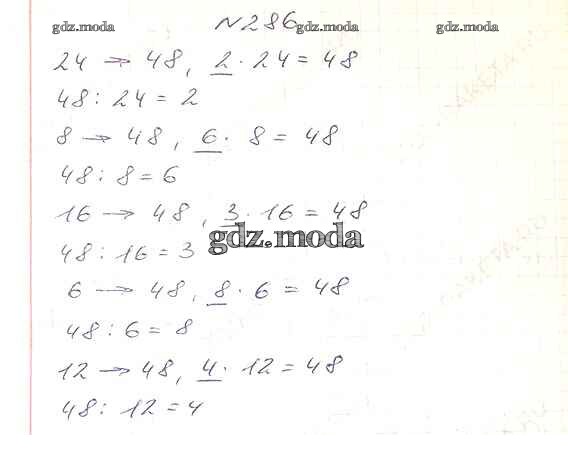 №286
gdz.moda gdz.moda gdz.moda
24 → 48, 2 · 24 = 48
48 : 24 = 2
8 → 48, 6 · 8 = 48
48 : 8 = 6
16 → 48, 3 · 16 = 48
gdz.moda
48 : 16 = 3
6 → 48, 8 · 6 = 48
48 : 6 = 8
12 → 48, 4 · 12 = 48
48 : 12 = 4